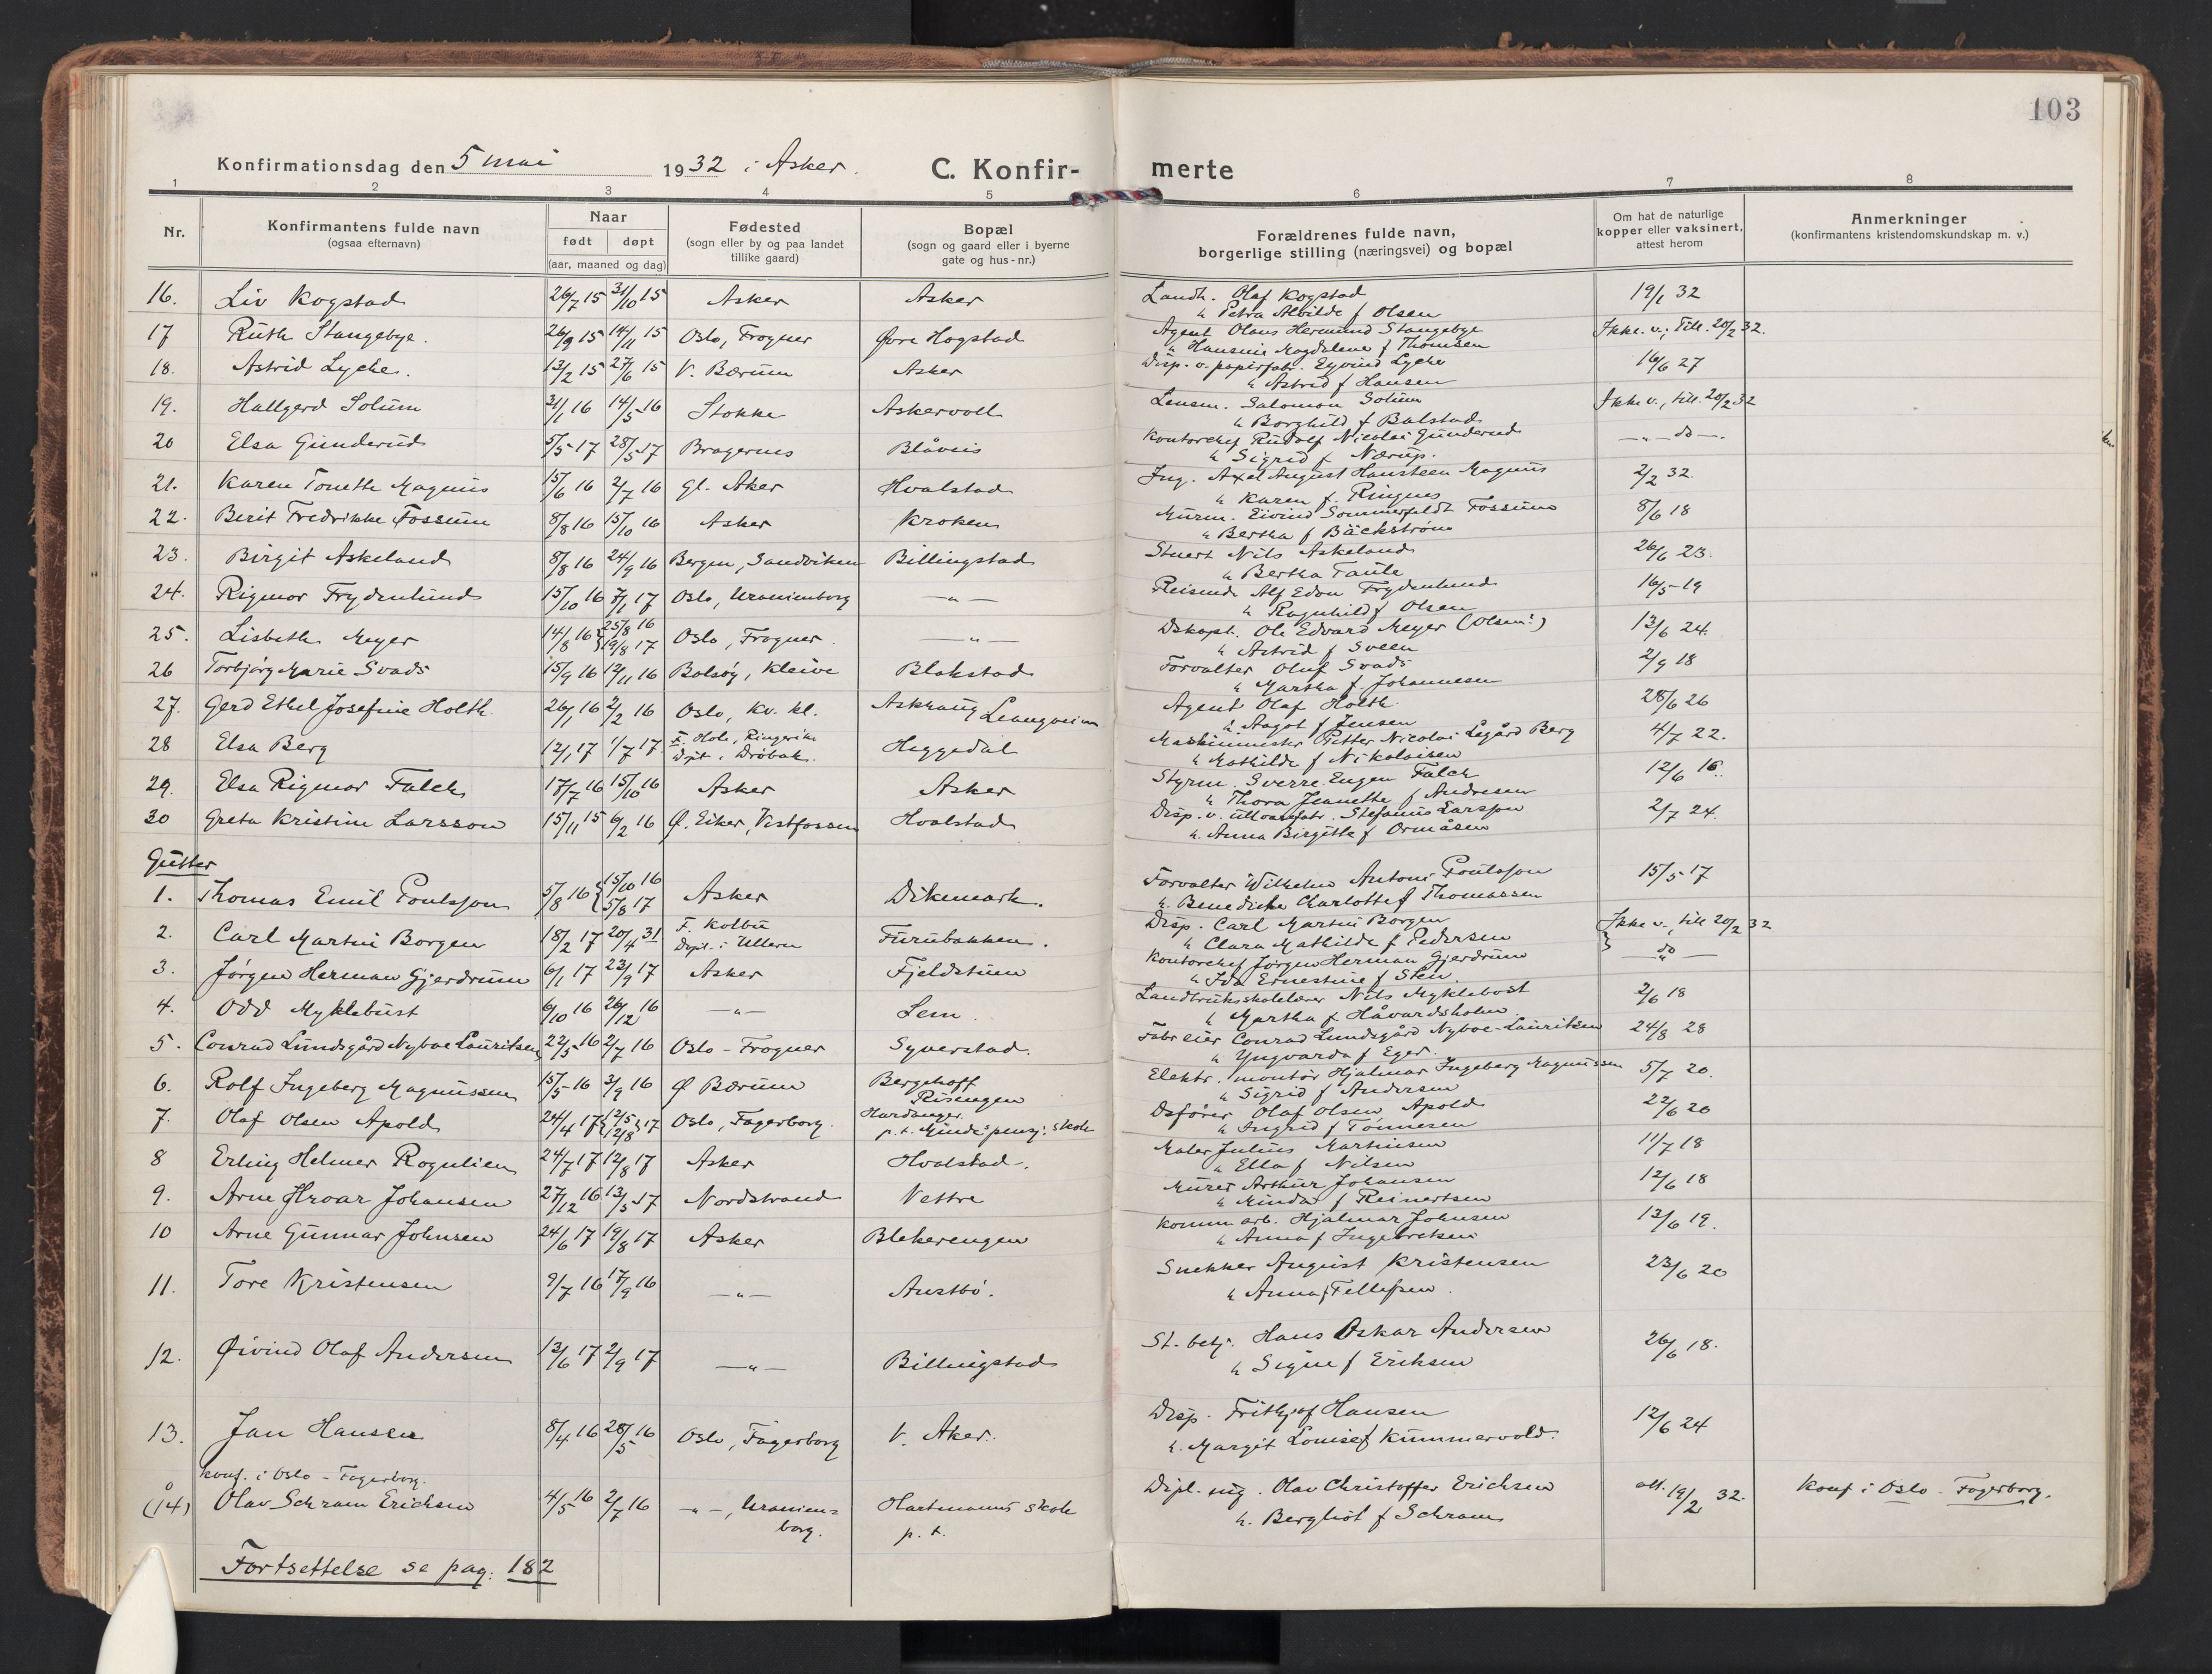 103
Konfirmationsdag den 5 mai 1932 i Asker. C. Konfirmerte
1 2 3 4 5 6 7 8
Nr. Konfirmantens fulde navn (ogsaa efternavn) Naar født døpt (aar, maaned og dag) Fødested (sogn eller by og paa landet tillike gaard) Bopæl (sogn og gaard eller i byerne gate og hus-nr.) Forældrenes fulde navn, borgerlige stilling (næringsvei) og bopæl Om hat de naturlige kopper eller vaksinert, attest herom Anmerkninger (konfirmantens kristendomskundskap m. v.)
16. Liv Kogstad 26/7 15 31/10 15 Asker Asker Landh. Olaf Kogstad 19/1 32
" Petra Albilde f Olsen
17 Ruth Stangebye. 26/9 15 14/11 15 Oslo, Frogner Øvre Hogstad Agent Olaus Hermund Stangebye Ikke. v., till. 20/2 32.
" Hansine Magdalene f Thomsen
18. Astrid Lyche. 13/2 15 27/6 15 V. Bærum Asker Disp. v. papirfabr. Eyvind Lyche 16/6 27
" Astrid f Hansen
19. Hallgerd Solum 31/1 16 14/5 16 Stokke Askervoll Lensm. Salomon Solum Ikke v., till. 20/2 32
" Borghild f Bulstad
20 Elsa Gunderud 5/5 17 28/5 17 Bragernes Blåveis Kontorchef Rudolf Nicolai Gunderud — " — do —.
" Sigrid f Nærup.
21. Karen Tonette Magnus 15/6 16 2/7 16 Gl. Aker Hvalstad Ing. Axel August Hansteen Magnus 2/2 32.
" Karen f. Ringnes
22. Berit Fredrikke Fossum 8/8 16 15/10 16 Asker Kroken Murm. Eivind Sommerfeldt Fossum 8/6 18
" Bertha f Bäckstrøm
23. Birgit Askeland 8/8 16 24/9 16 Bergen, Sandviken Billingstad Stuert Nils Askeland 26/6 23.
" Bertha Taule
24. Rigmor Frydenlund 15/10 16 7/1 17 Oslo, Uranienborg — " — Reisende Alf Edon Frydenlund 16/5 19
" Ragnhild f Olsen
25. Lisbeth Meyer 14/8 16 { 25/8 16 19/8 17 Oslo, Frogner — " — Dskapt. Ole Edvard Meyer (Olsen!) 13/6 24.
" Astrid f Sveen
26 Torbjørg Marie Svads 15/9 16 12/11 16 Bolsøy, Kleive Blakstad Forvalter Oluf Svads 2/9 18
" Martha f. Johannesen
27. Gerd Ethel Josefine Holth 26/1 16 2/2 16 Oslo, Kv. kl. Askhaug Leangveien Agent Olaf Holth. 28/6 26
" Aagot f Jensen
28 Elsa Berg 12/1 17 1/7 17 F. Hole, Ringerike Døpt i Drøbak. Heggedal Maskinmester Petter Nicolai Legård Berg 4/7 22.
" Mathilde f Nikolaisen
29. Elsa Rigmor Falch 17/7 16 15/10 16 Asker Asker Styrm. Sverre Eugen Falch 12/6 16.
" Thora Jeanette f Andresen
30 Greta Kristine Larsson 15/11 15 6/2 16 Ø. Eiker, Vestfossen Hvalstad Disp. v. ullvarefabr. Stefanus Larsson 2/7 24.
" Anna Birgitte f Ormåsen
Gutter
1. Thomas Emil Poulsson 5/8 16 { 15/10 16 5/8 17 Asker Dikemark. Forvalter Wilhelm Antoni Poulsson 15/5 17
" Benedicke Charlotte f Thomassen
2. Carl Martin Borgen 18/2 17 20/4 31 F. Kolbu Døpt. i Ullern Furubakken. Disp. Carl Martin Borgen Ikke v., till 20/2 32
" Clara Mathilde f Pedersen
3. Jørgen Herman Gjerdrum 6/1 17 23/9 17 Asker Fjeldstuen Kontorchef Jørgen Herman Gjerdrum } — do " —
" Ida Ernestine f Sten
4. Odd Myklebust 6/10 16 26/12 16 — " — Sem. Landbruksskolelærer Nils Myklebost 2/6 18
" Martha f. Håvardsholm
5. Conrad Lundsgård Nyboe Lauritsen 22/5 16 2/7 16 Oslo - Frogner Syverstad. Fabreier Conrad Lundsgård Nyboe-Lauritsen 24/8 28
" Yngvarda f Eger.
6. Rolf Ingeberg Magnussen 15/5 16 3/9 16 Ø Bærum Berghoff Risengen Elektr. montør Hjalmar Ingeberg Magnussen 5/7 20.
" Sigrid f Andersen
7. Olaf Olsen Apold 24/4 17 { 12/5 12/8 } 17 Oslo, Fagerborg. Hardanger. p.t. Mindes pensj. skole Dsfører Olaf Olsen Apold 22/6 20
" Ingrid f Tønnesen
8 Erling Helmer Rognlien 24/7 17 12/8 17 Asker Hvalstad. Maler Julius Martinsen 11/7 18
" Ella f Nilsen
9. Arne Hroar Johansen 27/12 16 13/5 17 Nordstrand Vettre Murer Arthur Johansen 12/6 18
" Minda f Reinertsen
10 Arne Gunnar Johnsen 24/6 17 19/8 17 Asker Blekerengen Komm arb. Hjalmar Johnsen 13/6 19.
" Anna f Ingebretsen
11. Tore Kristensen 9/7 16 17/9 16 — " — Austbø. Snekker August Kristensen 23/6 20
" Anna f Tellefsen.
12. Øivind Olaf Andersen 13/6 17 2/9 17 — " — Billingstad St. betj. Hans Oskar Andersen 26/6 18.
" Signe f Eriksen
13. Jan Hansen 8/4 16 28/5 16 Oslo, Fagerborg V. Aker. Disp. Frithjof Hansen 12/6 24
". Margit Louise f Kummervold.
konf. i Oslo - Fagerborg.
0
(14) Olav Schram Erichsen 4/5 16 2/7 16 — " —, Uranienborg. Hartmanns skole p.t. Dipl. ing. Olav Christoffer Erichsen att. 19/2 32. Konf i Oslo - Fagerborg.
". Bergliot f Schram
Fortsettelse se pag: 182